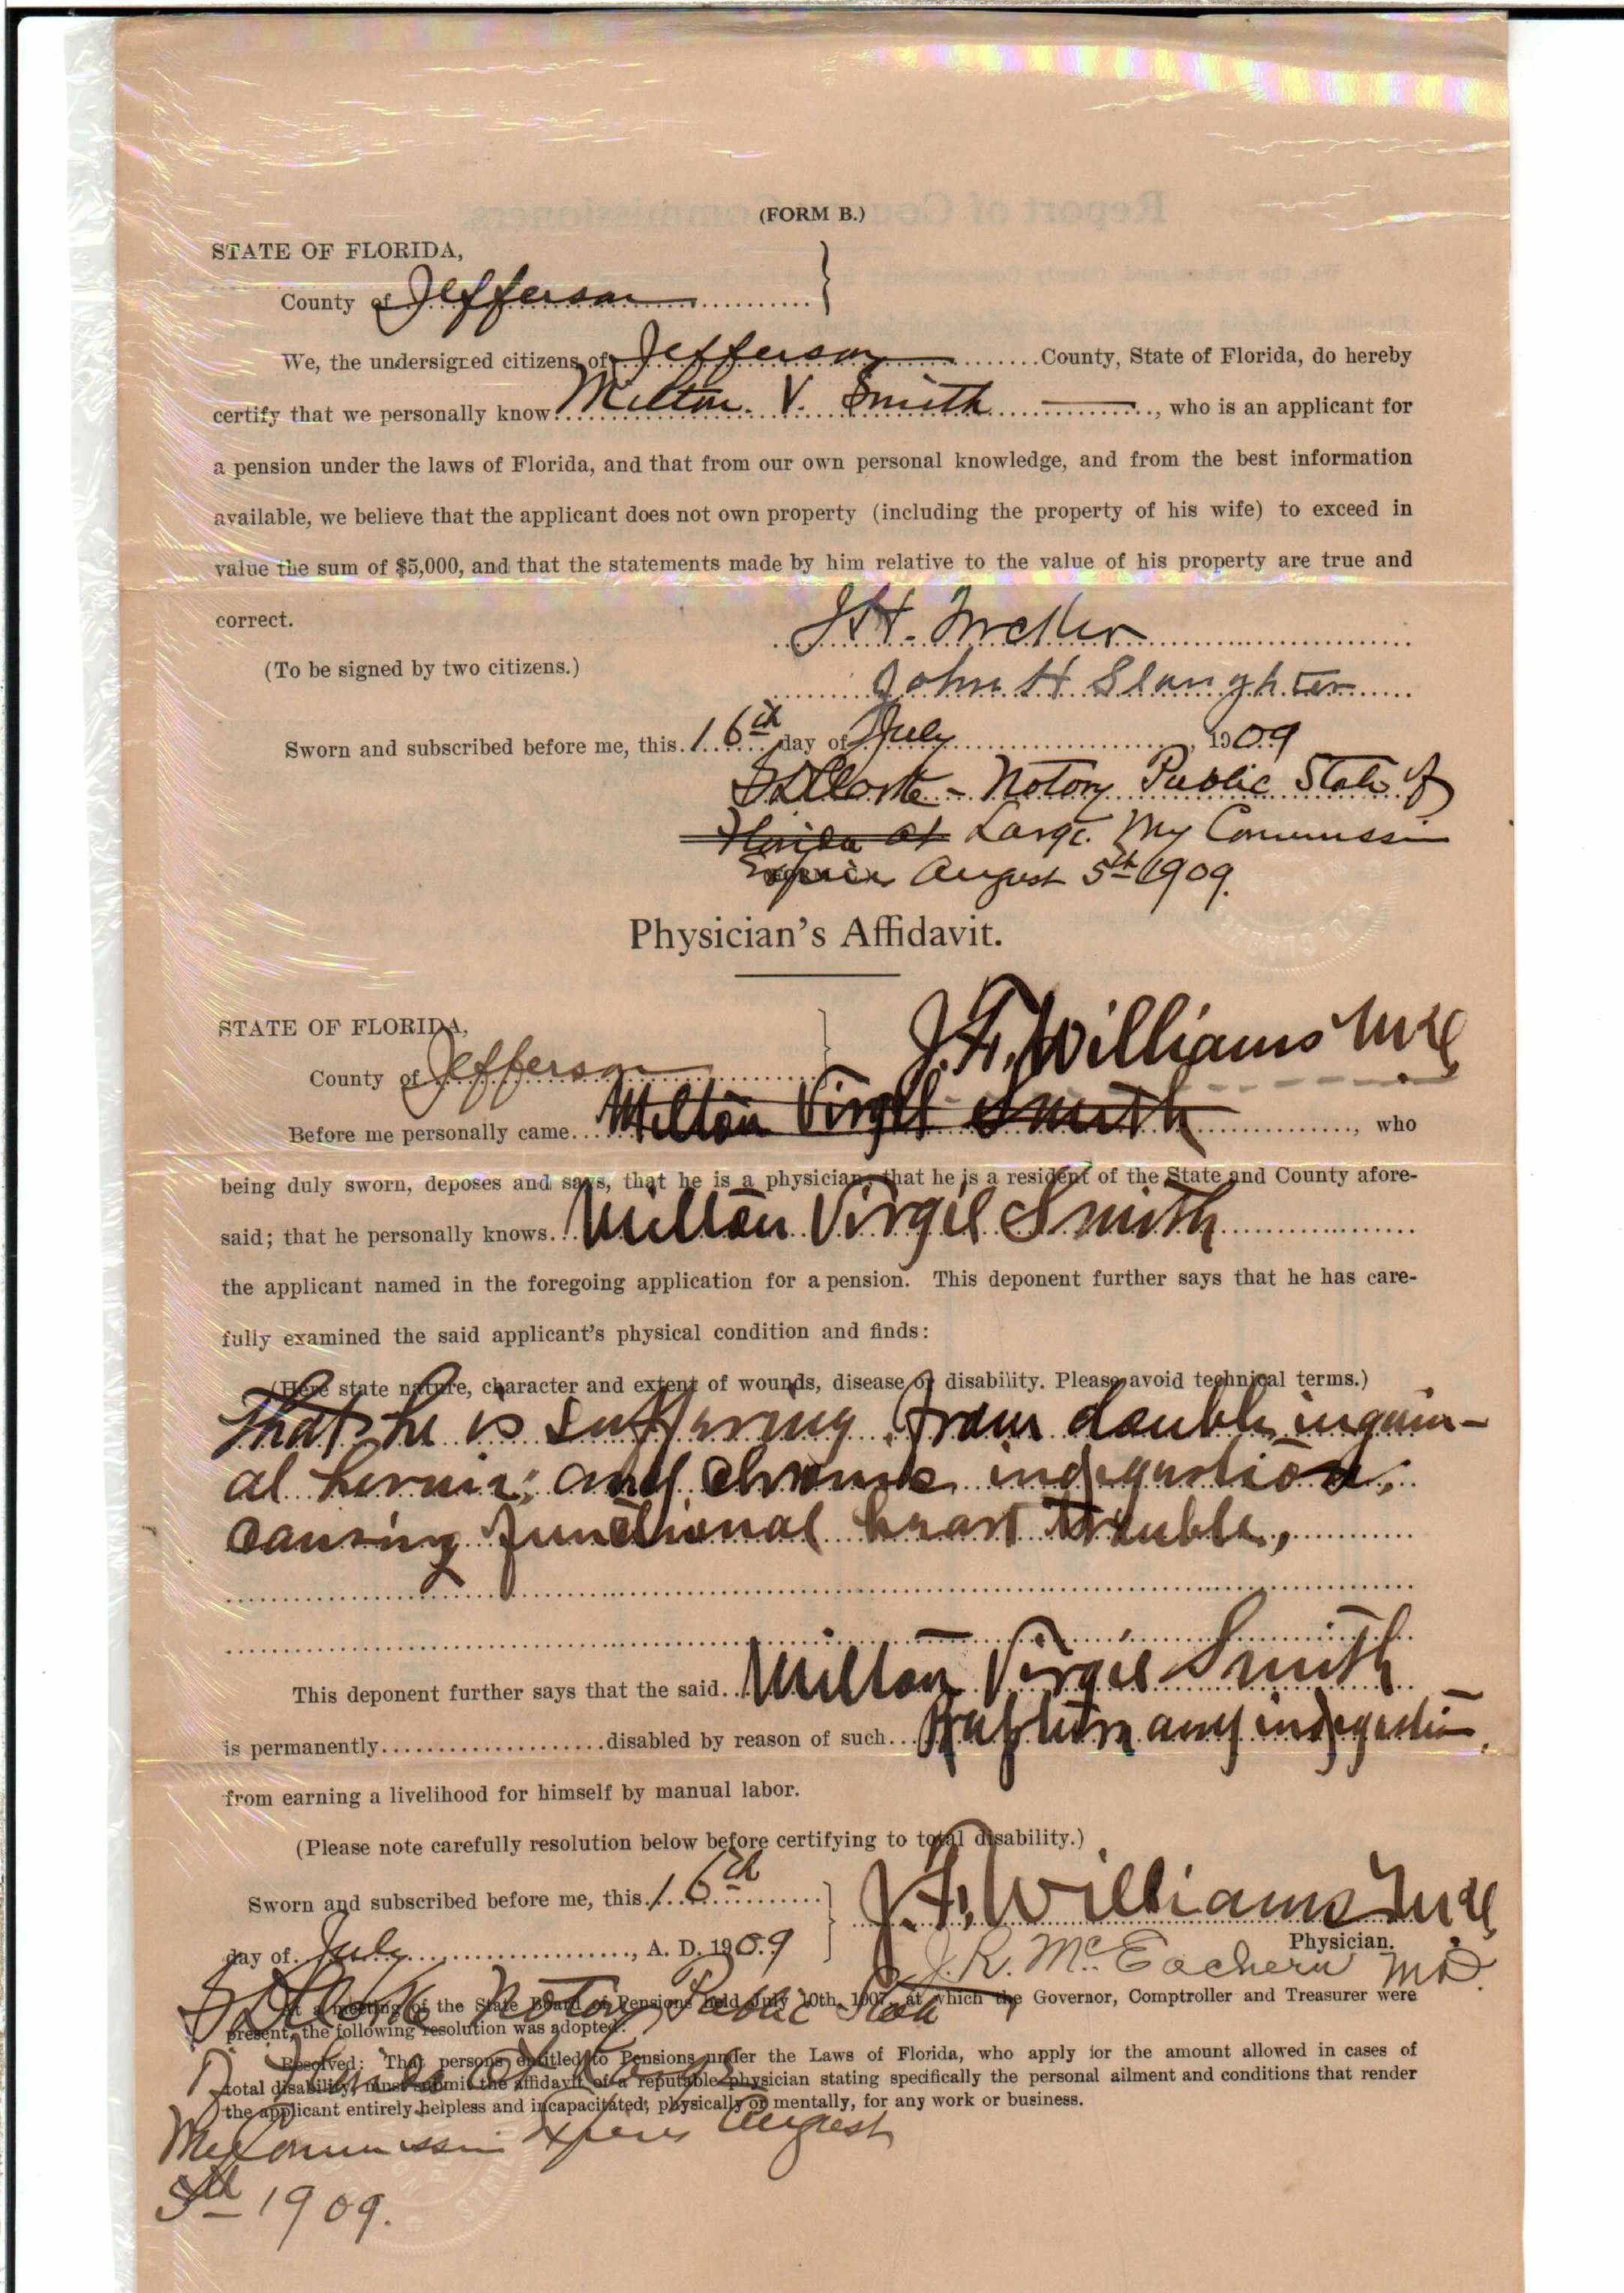 (FORM B.)
STATE OF FLORIDA,
County of Jefferson
We, the undersigned citizens of Jefferson County, State of Florida, do hereby
certify that we personally know Milton V. Smith, who is an applicant for
a pension under the laws of Florida, and that from our own personal knowledge, and from the best information
available, we believe that the applicant does not own property (including the property of his wife) to exceed in
value the sum of $5,000, and that the statements made by him relative to the value of his property are true and
correct.
(To be signed by two citizens.)
John H Slaughter
Sworn and subscribed before me, this 16th day of July, 1909
Notary Public State of
Florida at Large. My Commission
Expires August 5th 1909.
Physician's Affidavit.
STATE OF FLORIDA,
County of Jefferson
J. F. Williams MD
Before me personally came Milton Virgil Smith, who
being duly sworn, deposes and says, that he is a physician, that he is a resident of the State and County afore-
said; that he personally knows Milton Virgil Smith
the applicant named in the foregoing application for a pension. This deponent further says that he has care-
fully examined the said applicant's physical condition and finds:
(Here state nature, character and extent of wounds, disease or disability. Please avoid technical terms.)
That he is suffering from double inguin-
al hernia; and chronic indigestion,
causing functional heart trouble,
This deponent further says that the said Milton Virgil Smith
is permanently disabled by reason of such Rupture and indigestion,
from earning a livelihood for himself by manual labor.
(Please note carefully resolution below before certifying to total disability.)
Sworn and subscribed before me, this 16th
day of July, A. D. 1909
J. F. Williams MD
Physician.
J. R. McEachern MD
Notary Public State
of Florida at Large
My Commission Expires August
5th 1909.
At a meeting of the State Board of Pensions held July 10th, 1907, at which the Governor, Comptroller and Treasurer were
present, the following resolution was adopted:
Resolved: That persons entitled to Pensions under the Laws of Florida, who apply for the amount allowed in cases of
total disability, must submit the affidavit of a reputable physician stating specifically the personal ailment and conditions that render
the applicant entirely helpless and incapacitated, physically or mentally, for any work or business.